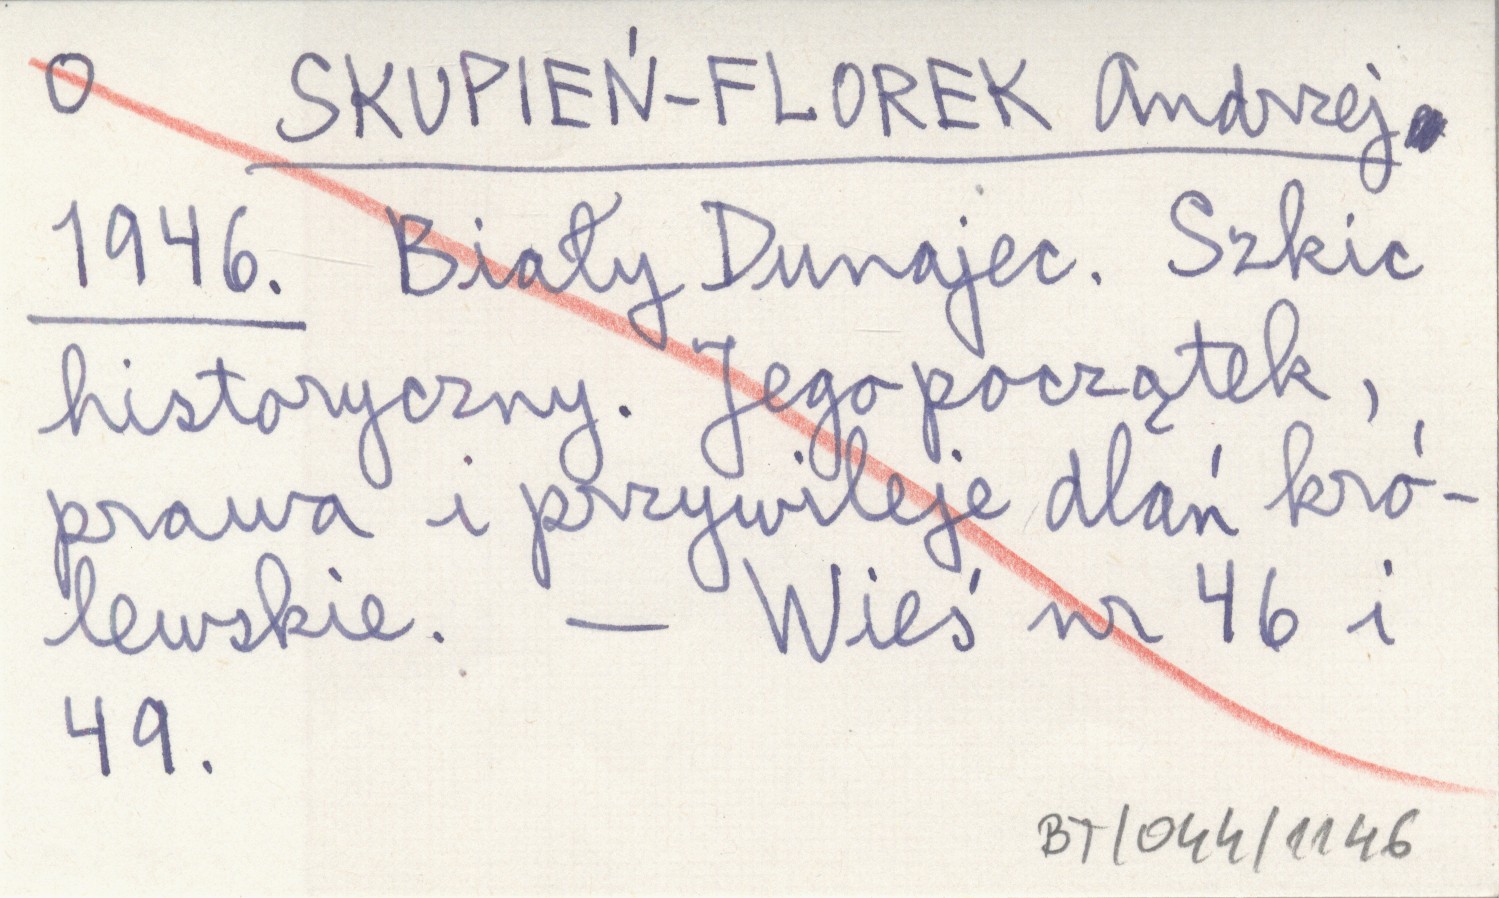 O SKUPIEŃ-FLOREK Andrzej.
1946. Biały Dunajec. Szkic
historyczny. Jego początek,
prawa i przywileje dlań kró-
lewskie. — Wieś nr 46 i
49.
BT/044/1146